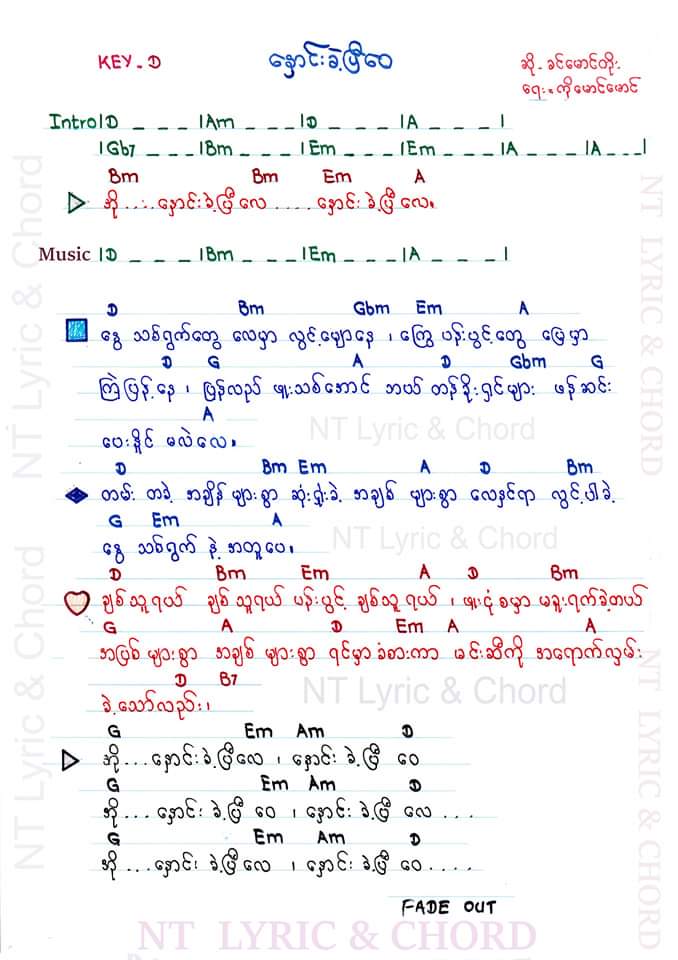 KEY - D
နှောင်းခဲ့ပြီဝေ
ဆို - ခင်မောင်တိုး
ရေး - ကိုမောင်မောင်
Intro|D _ _ _ |Am _ _ _ |D _ _ _ |A _ _ _ |
|Gb7 _ _ _ |Bm _ _ _ |Em _ _ _ |Em _ _ _ |A _ _ _ |A _ _ _|
Bm Bm Em A
အို ..... နှောင်းခဲ့ပြီလေ ..... နှောင်းခဲ့ပြီလေ။
Music |D _ _ _ |Bm _ _ _ |Em _ _ _ |A _ _ _ |
D Bm Gbm Em A
နွေ သစ်ရွက်တွေ လေမှာ လွင့်မျောနေ ၊ ကြွေ ပန်းပွင့်တွေ မြေမှာ
D G A D Gbm G
ကြဲပြန့်နေ ၊ ပြန်လည် ဖူးသစ်အောင် ဘယ် တန်ခိုးရှင်များ ဖန်ဆင်း
A
ပေးနိုင် မလဲလေ။
D Bm Em A D Bm
တမ်း တခဲ့ အချိန်များစွာ ဆုံးရှုံးခဲ့ အချစ် များစွာ လေနှင်ရာ လွင့်ပါခဲ့
G Em A
နွေ သစ်ရွက် နဲ့ အတူပေ။
D Bm Em A D Bm
ချစ်သူရယ် ချစ်သူရယ် ပန်းပွင့် ချစ်သူရယ် ၊ ဖူးငုံစမှာ မခူးရက်ခဲ့တယ်
G A D Em A A
အပြစ်များစွာ အချစ်များစွာ ရင်မှာခံစားကာ မင်းဆီကို အရောက်လှမ်း
D B7
ခဲ့သော်လည်း၊
G Em Am D
အို...နှောင်းခဲ့ပြီလေ ၊ နှောင်းခဲ့ပြီ ဝေ
G Em Am D
အို.... နှောင်းခဲ့ပြီ ဝေ ၊ နှောင်းခဲ့ပြီ လေ ...
G Em Am D
အို ...နှောင်းခဲ့ပြီလေ ၊ နှောင်းခဲ့ပြီ ဝေ ....
FADE OUT
NT LYRIC & CHORD
NT Lyric & Chord
NT Lyric & Chord
NT Lyric & Chord
NT Lyric & Chord
NT Lyric & Chord
NT LYRIC & CHORD
NT LYRIC & CHORD